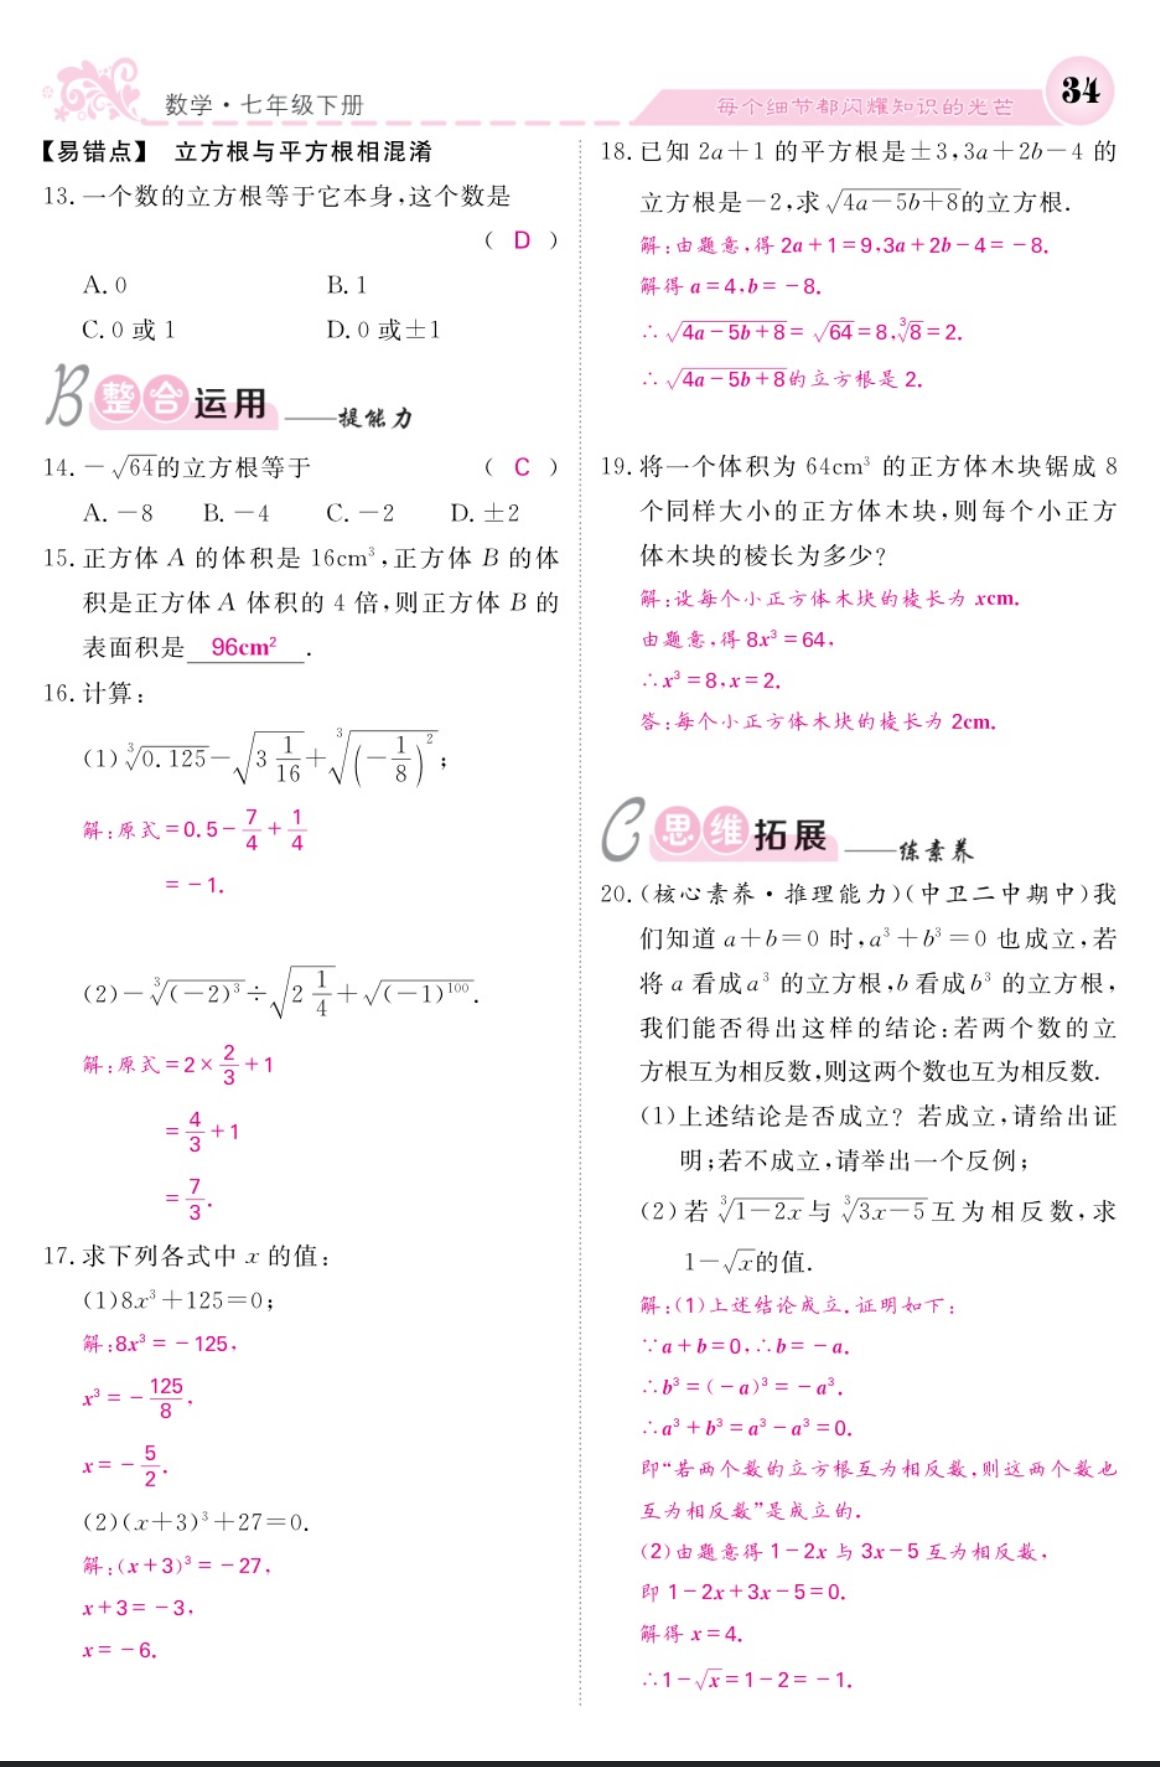 数学·七年级下册
每个细节都闪耀知识的光芒
34
【易错点】 立方根与平方根相混淆
13. 一个数的立方根等于它本身,这个数是
( D )
A. 0 B. 1
C. 0 或 1 D. 0 或±1
B 整合运用 ——提能力
14. −√64的立方根等于 ( C )
A. −8 B. −4 C. −2 D. ±2
15. 正方体 A 的体积是 16cm³,正方体 B 的体
积是正方体 A 体积的 4 倍,则正方体 B 的
表面积是 96cm² .
16. 计算:
(1)∛0.125−√(3 1/16)+∛((−1/8)²);
解:原式=0.5−7/4+1/4
=−1.
(2)−∛((−2)³)÷√(2 1/4)+√((−1)¹⁰⁰).
解:原式=2×2/3+1
=4/3+1
=7/3.
17. 求下列各式中 x 的值:
(1)8x³+125=0;
解:8x³=−125,
x³=−125/8,
x=−5/2.
(2)(x+3)³+27=0.
解:(x+3)³=−27,
x+3=−3,
x=−6.
18. 已知 2a+1 的平方根是±3,3a+2b−4 的
立方根是−2,求√(4a−5b+8)的立方根.
解:由题意,得 2a+1=9,3a+2b−4=−8.
解得 a=4,b=−8.
∴√(4a−5b+8)=√64=8,∛8=2.
∴√(4a−5b+8)的立方根是 2.
19. 将一个体积为 64cm³ 的正方体木块锯成 8
个同样大小的正方体木块,则每个小正方
体木块的棱长为多少?
解:设每个小正方体木块的棱长为 xcm.
由题意,得 8x³=64,
∴x³=8,x=2.
答:每个小正方体木块的棱长为 2cm.
C 思维拓展 ——练素养
20. (核心素养·推理能力)(中卫二中期中)我
们知道 a+b=0 时,a³+b³=0 也成立,若
将 a 看成a³ 的立方根,b 看成b³ 的立方根,
我们能否得出这样的结论:若两个数的立
方根互为相反数,则这两个数也互为相反数.
(1)上述结论是否成立? 若成立,请给出证
明;若不成立,请举出一个反例;
(2)若∛(1−2x)与∛(3x−5)互为相反数,求
1−√x的值.
解:(1)上述结论成立.证明如下:
∵a+b=0,∴b=−a.
∴b³=(−a)³=−a³.
∴a³+b³=a³−a³=0.
即“若两个数的立方根互为相反数,则这两个数也
互为相反数”是成立的.
(2)由题意得 1−2x 与 3x−5 互为相反数,
即 1−2x+3x−5=0.
解得 x=4.
∴1−√x=1−2=−1.